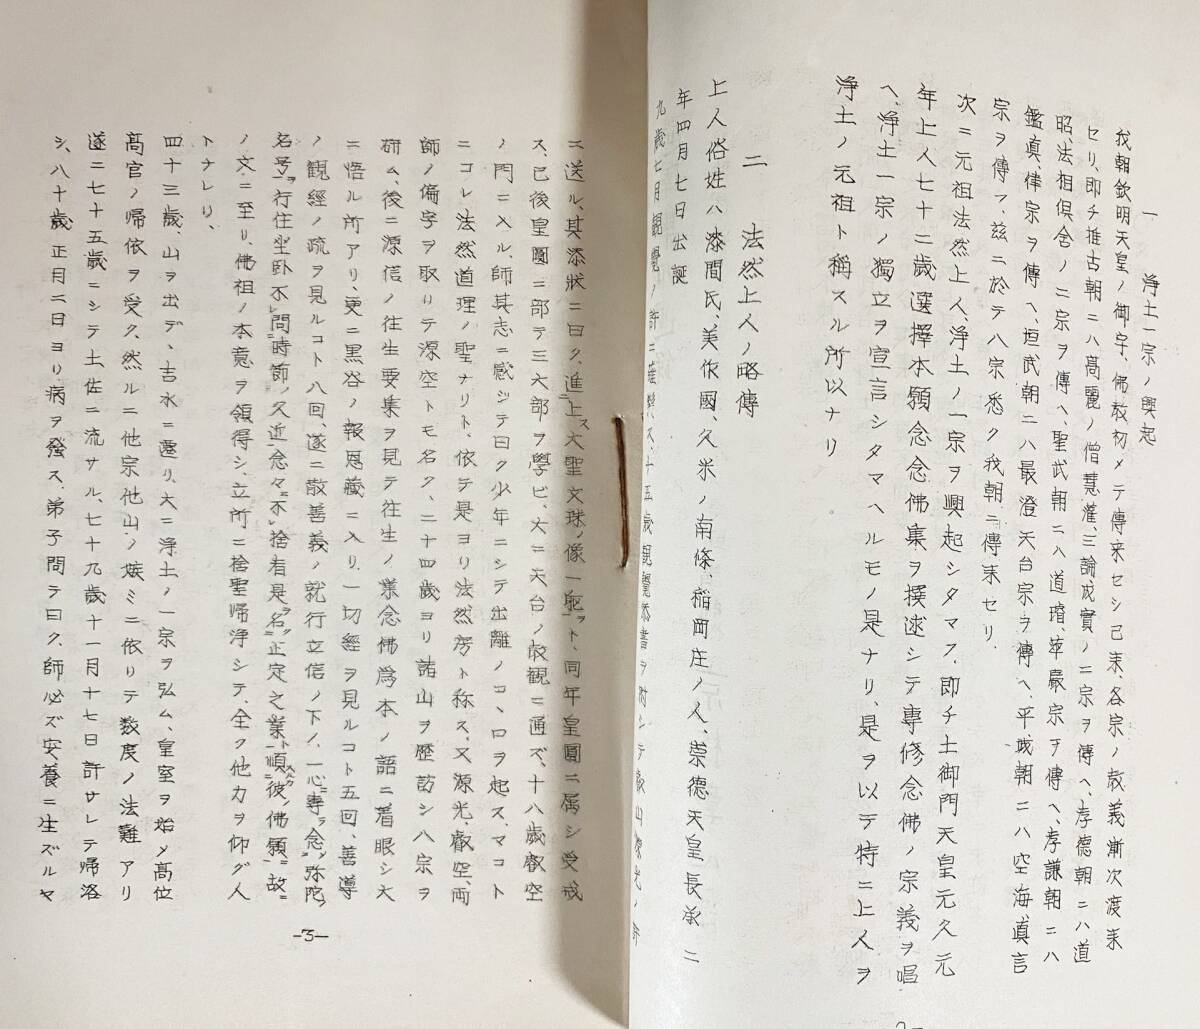 一 浄土一宗ノ興起
我朝欽明天皇ノ御宇、佛教初メテ傳来セシ已来、各宗ノ教義漸次渡来
セリ、即チ推古朝ニハ高麗ノ僧慧灌、三論成實ノ二宗ヲ傳ヘ、孝德朝ニハ道
昭法相倶舎ノ二宗ヲ傳ヘ、聖武朝ニハ道璿、華嚴宗ヲ傳ヘ、孝謙朝ニハ
鑑真、律宗ヲ傳ヘ、垣武朝ニハ最澄天台宗ヲ傳ヘ、平城朝ニハ空海、真言
宗ヲ傳フ、茲ニ於テ八宗悉ク我朝ニ傳来セリ、
次ニ元祖法然上人、浄土ノ一宗ヲ興起シタマフ、即チ土御門天皇元久元
年上人七十二歳選擇本願念佛集ヲ撰述シテ専修念佛ノ宗義ヲ唱
ヘ、浄土一宗ノ獨立ヲ宣言シタマヘルモノ是ナリ、是ヲ以テ特ニ上人ヲ
浄土ノ元祖ト稱スル所以ナリ
二 法然上人ノ略傳
上人俗姓ハ漆間氏、美作國、久米ノ南條、稲岡庄ノ人、崇德天皇長承二
年四月七日出誕
九歳七月観覺ノ許ニ 十五歳観覺添書ヲ附シテ叡山源光ノ許
ニ送ル、其添狀ニ曰ク、進上ス大聖文珠ノ像一軀ト、同年皇圓ニ属シ受戒
ス、已後皇圓ニ三部テ三大部ヲ學ビ、大ニ天台ノ教観ニ通ズ、十八歳叡空
ノ門ニ入ル、師其志ニ感ジテ曰ク少年ニシテ出離ノコヽロヲ起ス、マコト
ニコレ法然道理ノ聖ナリト、依テ是ヨリ法然房ト称ス、又源光、叡空、両
師ノ偏字ヲ取リテ源空トモ名ク、二十四歳ヨリ諸山ヲ歴訪シ八宗ヲ
研ム、後ニ源信ノ往生要集ヲ見テ往生ノ業念佛為本ノ語ニ着眼シ大
ニ悟ル所アリ、更ニ黒谷ノ報恩蔵ニ入リ、一切經ヲ見ルコト五回、善導
ノ観經ノ疏ヲ見ルコト八回、遂ニ散善義ノ就行立信ノ下ノ、一心ニ専ラ念ジ弥陀ノ
名号ヲ行住坐臥不レ問ニ時節ノ久近念々ニ不レ捨者是ヲ名ク正定之業ト順ズルカ彼ノ佛願ニ故ニ
ノ文ニ至リ、佛祖ノ本意ヲ領得シ、立所ニ捨聖帰浄シテ、全ク他力ヲ仰グ人
トナレリ、
四十三歳、山ヲ出デ、吉水ニ遷リ、大ニ浄土ノ一宗ヲ弘ム、皇室ヲ始メ高位
高官ノ帰依ヲ受ク、然ルニ他宗他山ノ嫉ミニ依リテ数度ノ法難アリ
遂ニ七十五歳ニシテ土佐ニ流サル、七十九歳十一月十七日許サレテ帰洛
シ、八十歳正月二日ヨリ病ヲ發ス、弟子問テ曰ク、師必ズ安養ニ生ズルヤ
-3-